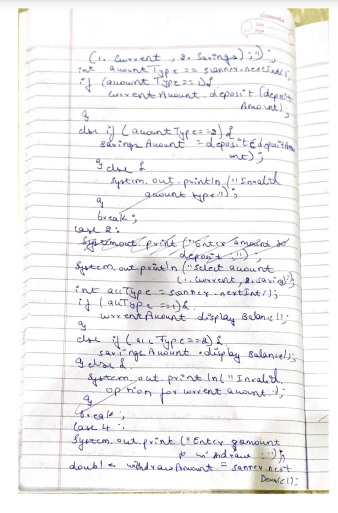 (1. Current, 2. Savings):");
int auountType == scanner.nextInt();
if (auountType==1){
current Auount. deposit (deposit
Amount);
}
else if (auountType==2){
savings Auount = deposit(depositAmo
unt);
} else {
System.out.println("Invalid
auount type.");
}
break;
case 2:
System.out.print("Enter amount to
deposit:");
System.out.println("Select auount
(1. Current, 2. saving):");
int acType = scanner.nextInt();
if (auType==1){
current Auount. display Balance();
}
else if (acType==2){
savings Auount.display Balance();
} else {
System.out.println("Invalid
option for current auount.");
}
break;
case 4:
System.out.print("Enter amount
to withdraw:");
double withdrawAmount = scanner.next
Double();